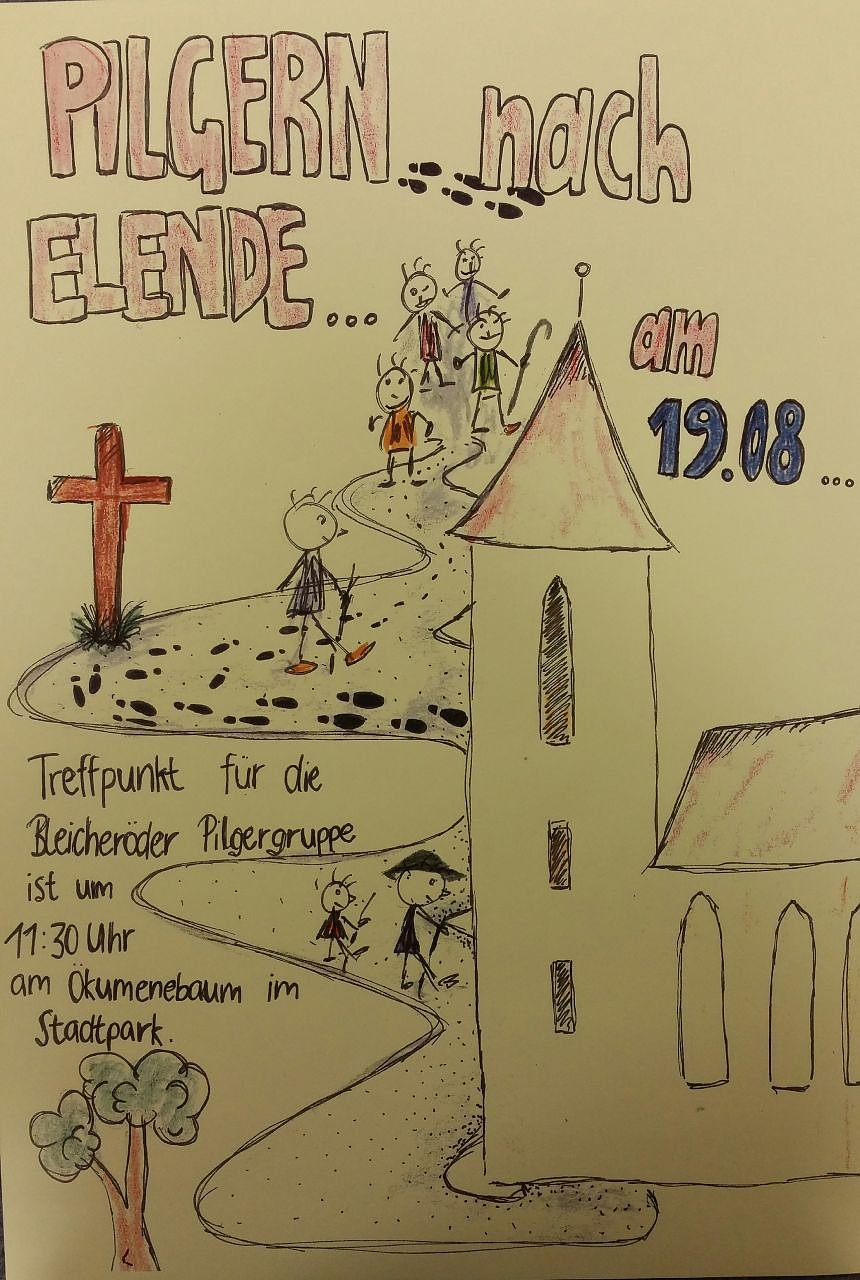 PILGERN ... nach
ELENDE...
am
19.08 ...
Treffpunkt für die
Bleicheröder Pilgergruppe
ist um
11:30 Uhr
am Ökumenebaum im
Stadtpark.